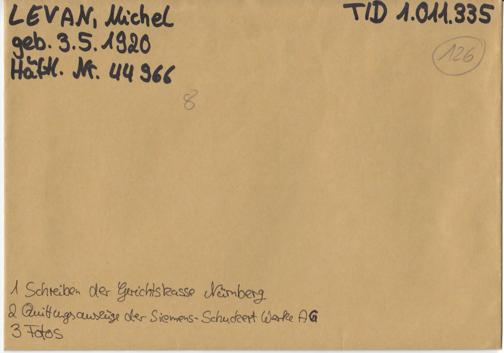 LEVAN, Michel
TID 1.011.335
geb. 3.5.1920
126
Häftl. Nr. 44 966
8
1 Schreiben der Gerichtskasse Nürnberg
2 Quittungsauszüge der Siemens-Schuckert Werke AG
3 Fotos